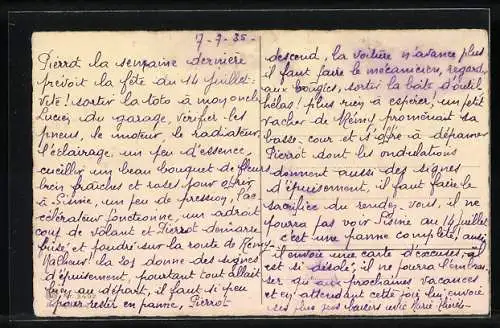 7-7-35-
Pierrot la semaine dernière
prévoit la fête du 14 juillet:
vite! sortir la toto à mon oncle
Lucien du garage, vérifier les
pneus, le moteur, le radiateur
l'éclairage, un peu d'essence,
cueillir un beau bouquet de fleurs
bien fraîches et roses pour offrir
à un peu de pression, l'ac-
célérateur fonctionne, un adroit
coup de volant et Pierrot démarre
et poudré sur la route de
Malheur! la 201 donne des signes
d'épuisement, pourtant tout allait
bien au départ, il faut si peu
pour rester en panne, Pierrot
descend, la voiture n'avance plus
il faut faire le mécanicien, regard.
aux bougies, sortir la boîte d'outil
hélas! plus rien à espérer, un petit
vacher de promenant sa
basse-cour et s'offre à dépanner
Pierrot dont les ondulations
donnent aussi des signes
d'épuisement, il faut faire le
sacrifice du rendez-vous, il ne
pourra pas voir au 14 juillet
c'est une panne complète, aussi
il envoie une carte d'excuses, il
est si désolé, il ne pourra l'embras-
ser qu'aux prochaines vacances
et en attendant cette joie lui envoie
ses plus gros baisers